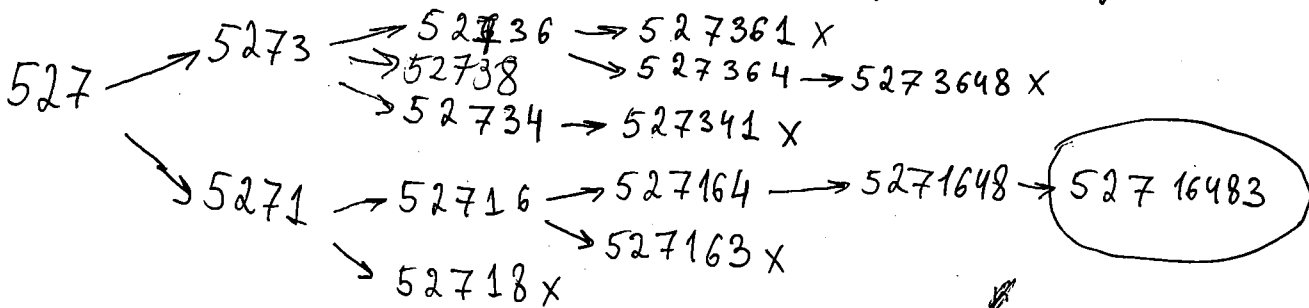 5273 → 52736 → 527361 x
527 → 52738 → 527364 → 5273648 x
52734 → 527341 x
5271 → 52716 → 527164 → 5271648 → 52716483
527163 x
52718 x